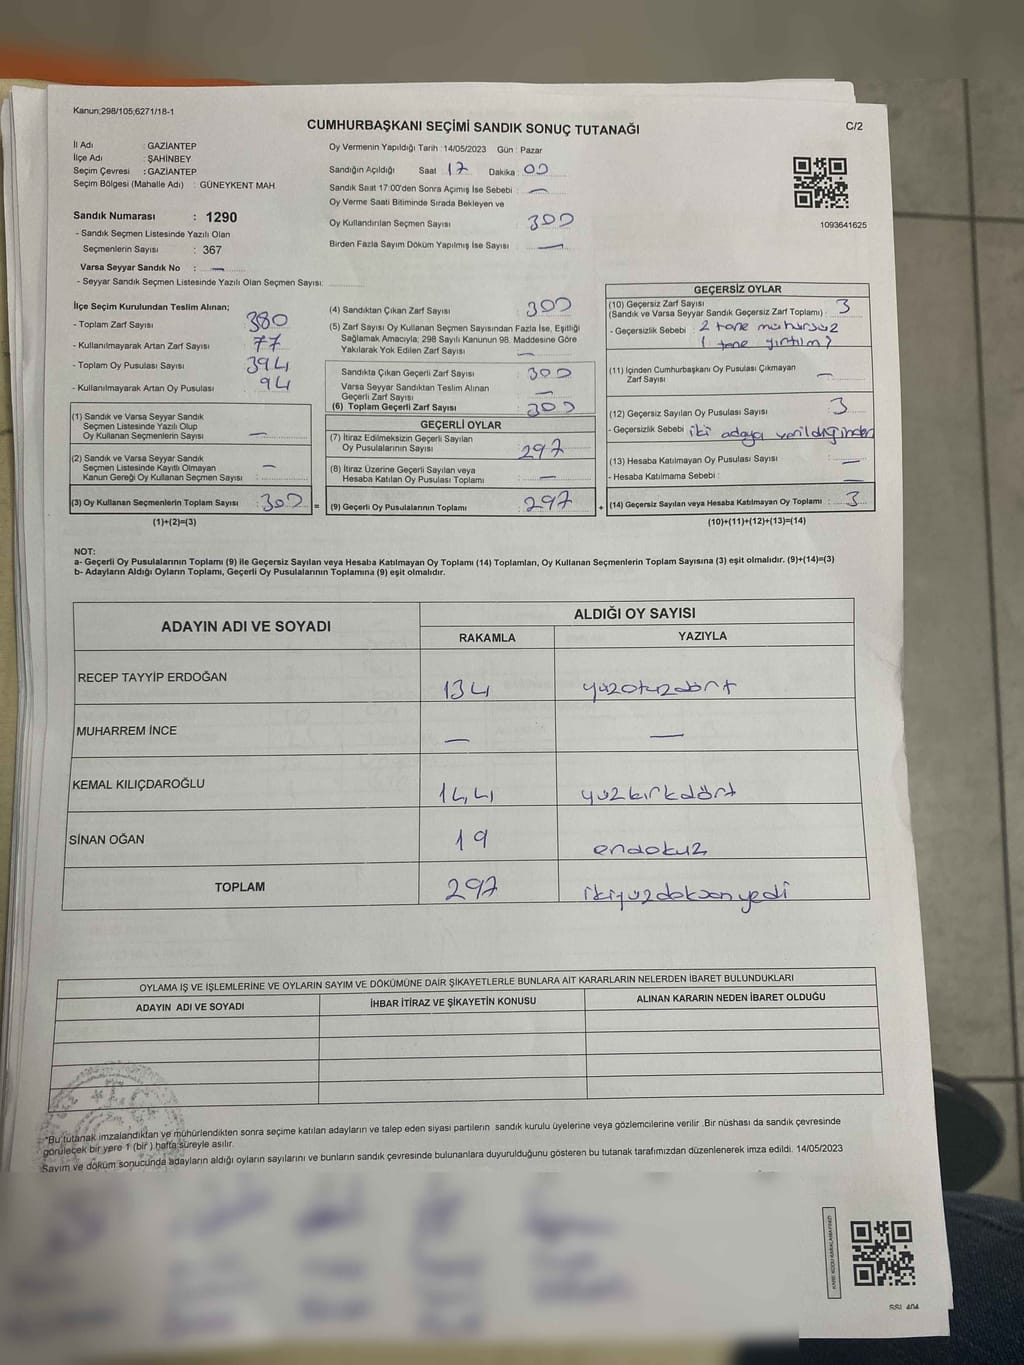 Kanun;298/105;6271/18-1
CUMHURBAŞKANI SEÇİMİ SANDIK SONUÇ TUTANAĞI
C/2
İl Adı : GAZİANTEP
İlçe Adı : ŞAHİNBEY
Seçim Çevresi : GAZİANTEP
Seçim Bölgesi (Mahalle Adı) : GÜNEYKENT MAH.
Sandık Numarası : 1290
- Sandık Seçmen Listesinde Yazılı Olan
Seçmenlerin Sayısı : 367
Varsa Seyyar Sandık No : —
- Seyyar Sandık Seçmen Listesinde Yazılı Olan Seçmen Sayısı:
Oy Vermenin Yapıldığı Tarih :14/05/2023 Gün : Pazar
Sandığın Açıldığı Saat 17 Dakika 00
Sandık Saat 17:00'den Sonra Açımış İse Sebebi : —
Oy Verme Saati Bitiminde Sırada Bekleyen ve
Oy Kullandırılan Seçmen Sayısı : 300
Birden Fazla Sayım Döküm Yapılmış İse Sayısı : —
1093641625
İlçe Seçim Kurulundan Teslim Alınan;
- Toplam Zarf Sayısı : 380
- Kullanılmayarak Artan Zarf Sayısı : 77
- Toplam Oy Pusulası Sayısı : 394
- Kullanılmayarak Artan Oy Pusulası : 94
(1) Sandık ve Varsa Seyyar Sandık
Seçmen Listesinde Yazılı Olup
Oy Kullanan Seçmenlerin Sayısı : —
(2) Sandık ve Varsa Seyyar Sandık
Seçmen Listesinde Kayıtlı Olmayan
Kanun Gereği Oy Kullanan Seçmen Sayısı : —
(3) Oy Kullanan Seçmenlerin Toplam Sayısı : 300 =
(1)+(2)=(3)
(4) Sandıktan Çıkan Zarf Sayısı : 300
(5) Zarf Sayısı Oy Kullanan Seçmen Sayısından Fazla İse, Eşitliği
Sağlamak Amacıyla; 298 Sayılı Kanunun 98. Maddesine Göre
Yakılarak Yok Edilen Zarf Sayısı : —
Sandıkta Çıkan Geçerli Zarf Sayısı : 300
Varsa Seyyar Sandıktan Teslim Alınan
Geçerli Zarf Sayısı : —
(6) Toplam Geçerli Zarf Sayısı : 300
GEÇERLİ OYLAR
(7) İtiraz Edilmeksizin Geçerli Sayılan
Oy Pusulalarının Sayısı : 297
(8) İtiraz Üzerine Geçerli Sayılan veya
Hesaba Katılan Oy Pusulası Toplamı : —
(9) Geçerli Oy Pusulalarının Toplamı : 297 +
GEÇERSİZ OYLAR
(10) Geçersiz Zarf Sayısı
(Sandık ve Varsa Seyyar Sandık Geçersiz Zarf Toplamı) : 3
- Geçersizlik Sebebi : 2 tane mühürsüz
1 tane
(11) İçinden Cumhurbaşkanı Oy Pusulası Çıkmayan
Zarf Sayısı : —
(12) Geçersiz Sayılan Oy Pusulası Sayısı : 3
- Geçersizlik Sebebi iki adaya verildiğinden
(13) Hesaba Katılmayan Oy Pusulası Sayısı : —
- Hesaba Katılmama Sebebi : —
(14) Geçersiz Sayılan veya Hesaba Katılmayan Oy Toplamı : 3
(10)+(11)+(12)+(13)=(14)
NOT:
a- Geçerli Oy Pusulalarının Toplamı (9) ile Geçersiz Sayılan veya Hesaba Katılmayan Oy Toplamı (14) Toplamları, Oy Kullanan Seçmenlerin Toplam Sayısına (3) eşit olmalıdır. (9)+(14)=(3)
b- Adayların Aldığı Oyların Toplamı, Geçerli Oy Pusulalarının Toplamına (9) eşit olmalıdır.
ADAYIN ADI VE SOYADI
ALDIĞI OY SAYISI
RAKAMLA YAZIYLA
RECEP TAYYİP ERDOĞAN 134 yüzotuzdört
MUHARREM İNCE — —
KEMAL KILIÇDAROĞLU 144 yüzkırkdört
SİNAN OĞAN 19 ondokuz
TOPLAM 297 ikiyüzdoksanyedi
OYLAMA İŞ VE İŞLEMLERİNE VE OYLARIN SAYIM VE DÖKÜMÜNE DAİR ŞİKAYETLERLE BUNLARA AİT KARARLARIN NELERDEN İBARET BULUNDUKLARI
ADAYIN ADI VE SOYADI İHBAR İTİRAZ VE ŞİKAYETİN KONUSU ALINAN KARARIN NEDEN İBARET OLDUĞU
*Bu tutanak imzalandıktan ve mühürlendikten sonra seçime katılan adayların ve talep eden siyasi partilerin sandık kurulu üyelerine veya gözlemcilerine verilir .Bir nüshası da sandık çevresinde
görülecek bir yere 1 (bir ) hafta süreyle asılır.
Sayım ve döküm sonucunda adayların aldığı oyların sayılarını ve bunların sandık çevresinde bulunanlara duyurulduğunu gösteren bu tutanak tarafımızdan düzenlenerek imza edildi. 14/05/2023